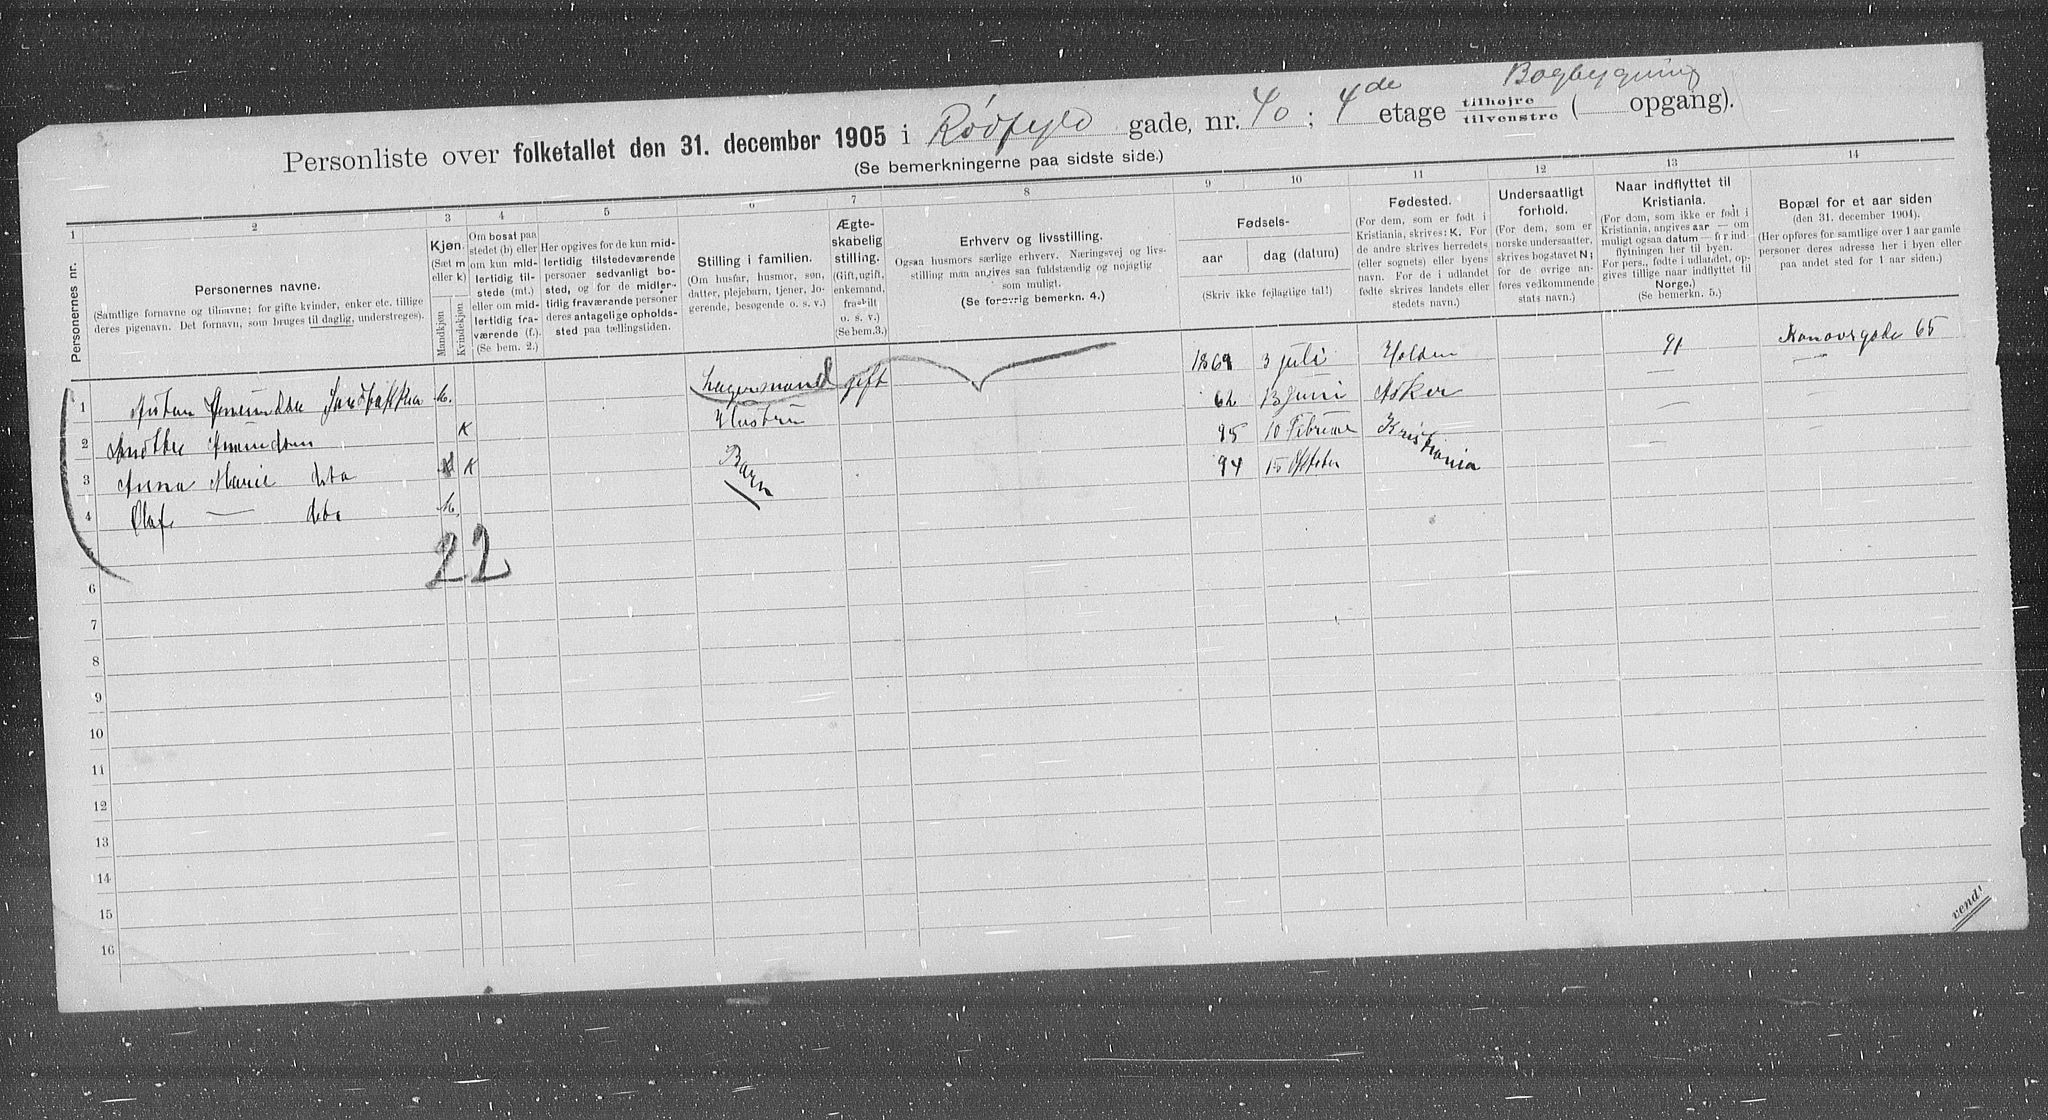 Bagbygning
Personliste over folketallet den 31. december 1905 i Rødfyld gade, nr. 40 ; 4de etage tilhøjre tilvenstre ( opgang).
(Se bemerkningerne paa sidste side.)
1 2 3 4 5 6 7 8 9 10 11 12 13 14
Personernes nr.
Personernes navne.
(Samtlige fornavne og tilnavne; for gifte kvinder, enker etc. tillige
deres pigenavn. Det fornavn, som bruges til daglig, understreges).
Kjøn.
(Sæt m
eller k)
Mandkjøn
Kvindekjøn
Om bosat paa
stedet (b) eller
om kun mid-
lertidig til-
stede (mt.)
eller om mid-
lertidig fra-
værende (f.).
(Se bem. 2.)
Her opgives for de kun mid-
lertidig tilstedeværende
personer sedvanligt bo-
sted, og for de midler-
tidig fraværende personer
deres antagelige opholds-
sted paa tællingstiden.
Stilling i familien.
(Om husfar, husmor, søn,
datter, plejebarn, tjener, lo-
gerende, besøgende o. s. v.)
Ægte-
skabelig
stilling.
(Gift, ugift,
enkemand,
fraskilt
o. s. v.)
(Se bem.3.)
Erhverv og livsstilling.
Ogsaa husmors særlige erhverv. Næringsvej og livs-
stilling maa angives saa fuldstændig og nøjagtig
som muligt.
(Se forøvrig bemerkn. 4.)
Fødsels-
aar
dag (datum)
(Skriv ikke fejlagtige tal!)
Fødested.
(For dem, som er født i
Kristiania, skrives: K. For
de andre skrives herredets
(eller sognets) eller byens
navn. For de i udlandet
fødte skrives landets eller
stedets navn.)
Undersaatligt
forhold.
(For dem, som er
norske undersaatter,
skrives bogstavet N;
for de øvrige an-
føres vedkommende
stats navn.)
Naar indflyttet til
Kristiania.
(For dem, som ikke er født i
Kristiania, angives aar — om
muligt ogsaa datum — for ind-
flytningen her til byen.
For pers., født i udlandet, op-
gives tillige naar indflyttet til
Norge.)
(Se bemerkn. 5.)
Bopæl for et aar siden
(den 31. december 1904).
(Her opføres for samtlige over 1 aar gamle
personer deres adresse her i byen eller
paa andet sted for 1 aar siden.)
1 Anton Amundsen M. Lagermand gift 1869 3 juli Holden 91 65
2 Amundsen K Hustru 62 13 juni Asker — —
3 Anna Marie dto K Barn 95 10 Februar Kristiania — —
4 Olaf — dto M. 94 15 Oktober
5
22
6
7
8
9
10
11
12
13
14
15
16
vend!